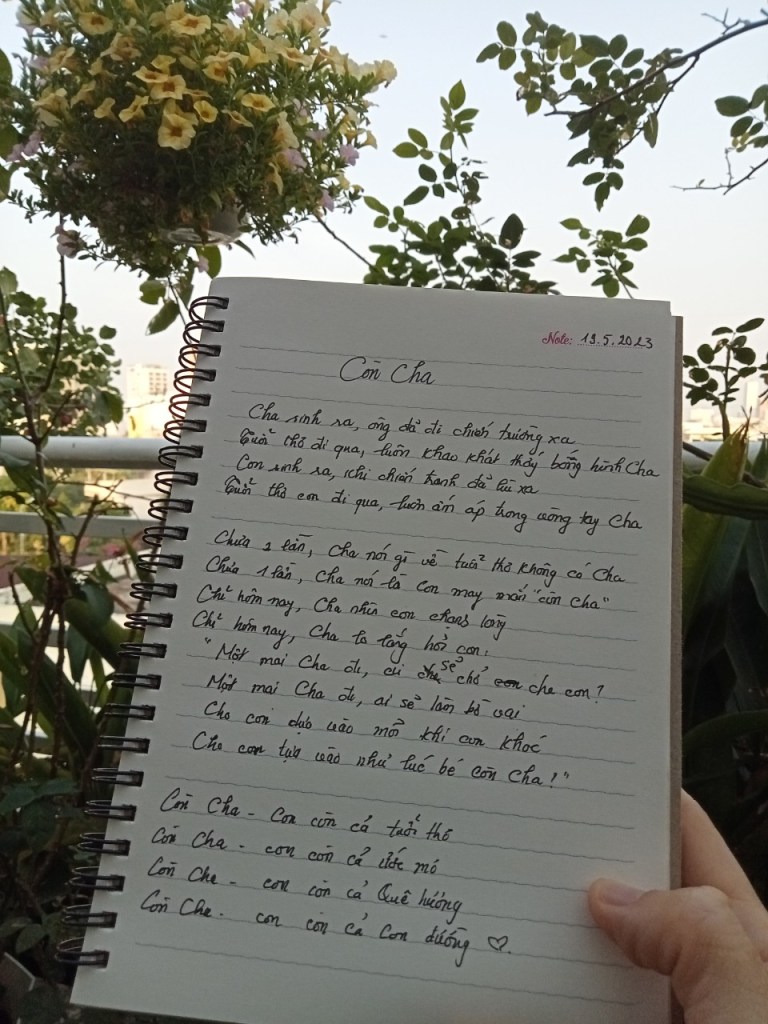 Note: 19.5.2023
Còn Cha
Cha sinh ra, ông đã đi chiến trường xa
Tuổi thơ đi qua, luôn khao khát thấy bóng hình Cha
Con sinh ra, khi chiến tranh đã lùi xa
Tuổi thơ con đi qua, luôn ấm áp trong vòng tay Cha
Chưa 1 lần, Cha nói gì về tuổi thơ không có Cha
Chưa 1 lần, Cha nói là con may mắn "còn Cha"
Chỉ hôm nay, Cha nhìn con chạnh lòng
Chỉ hôm nay, Cha lo lắng hỏi con:
"Một mai Cha đi, ai sẽ chở che con?
Một mai Cha đi, ai sẽ làm bờ vai
Cho con dựa vào mỗi khi con khóc
Cho con tựa vào như lúc bé còn Cha!"
Còn Cha - Con còn cả tuổi thơ
Còn Cha - con còn cả ước mơ
Còn Cha - con còn cả Quê hương
Còn Cha - con còn cả Con đường ♡.